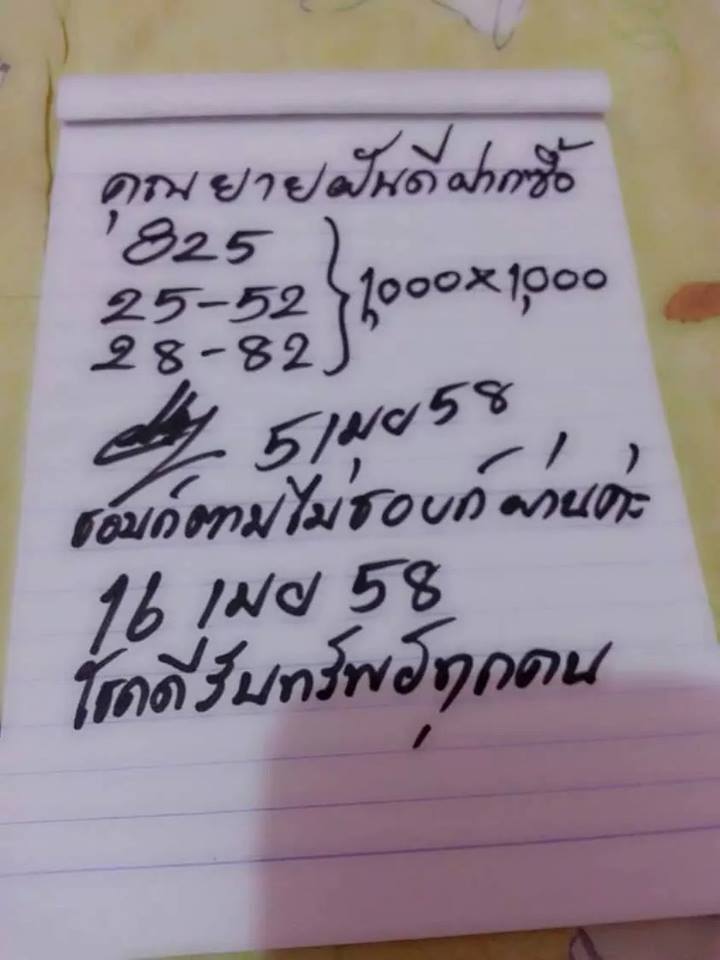 คุณยายฝันดีฝากซื้อ
825
25-52
28-82
1,000×1,000
5 เมย 58
ชอบก็ตามไม่ชอบก็ผ่านค่ะ
16 เมย 58
โชคดีรับทรัพย์ทุกคน